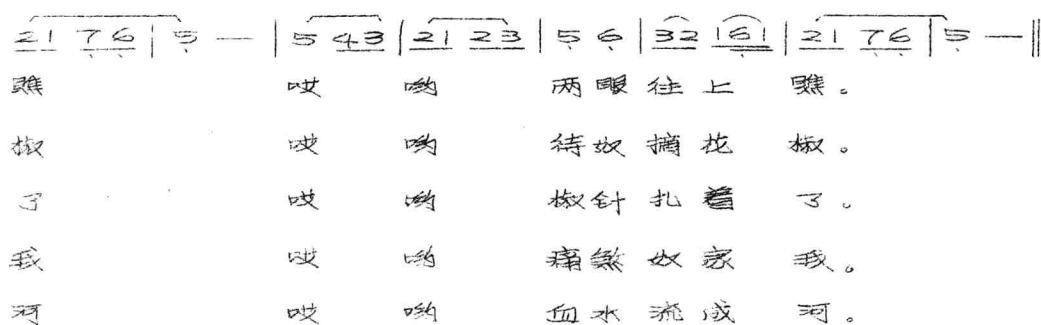 21 76 | 5 — | 5 43 | 21 23 | 5 6 | 32 161 | 21 76 | 5 — ‖
瞧 哎 哟 两眼往上 瞧。
椒 哎 哟 待奴摘花 椒。
了 哎 哟 椒针扎着 了。
我 哎 哟 痛煞奴家 我。
河 哎 哟 血水流成 河。